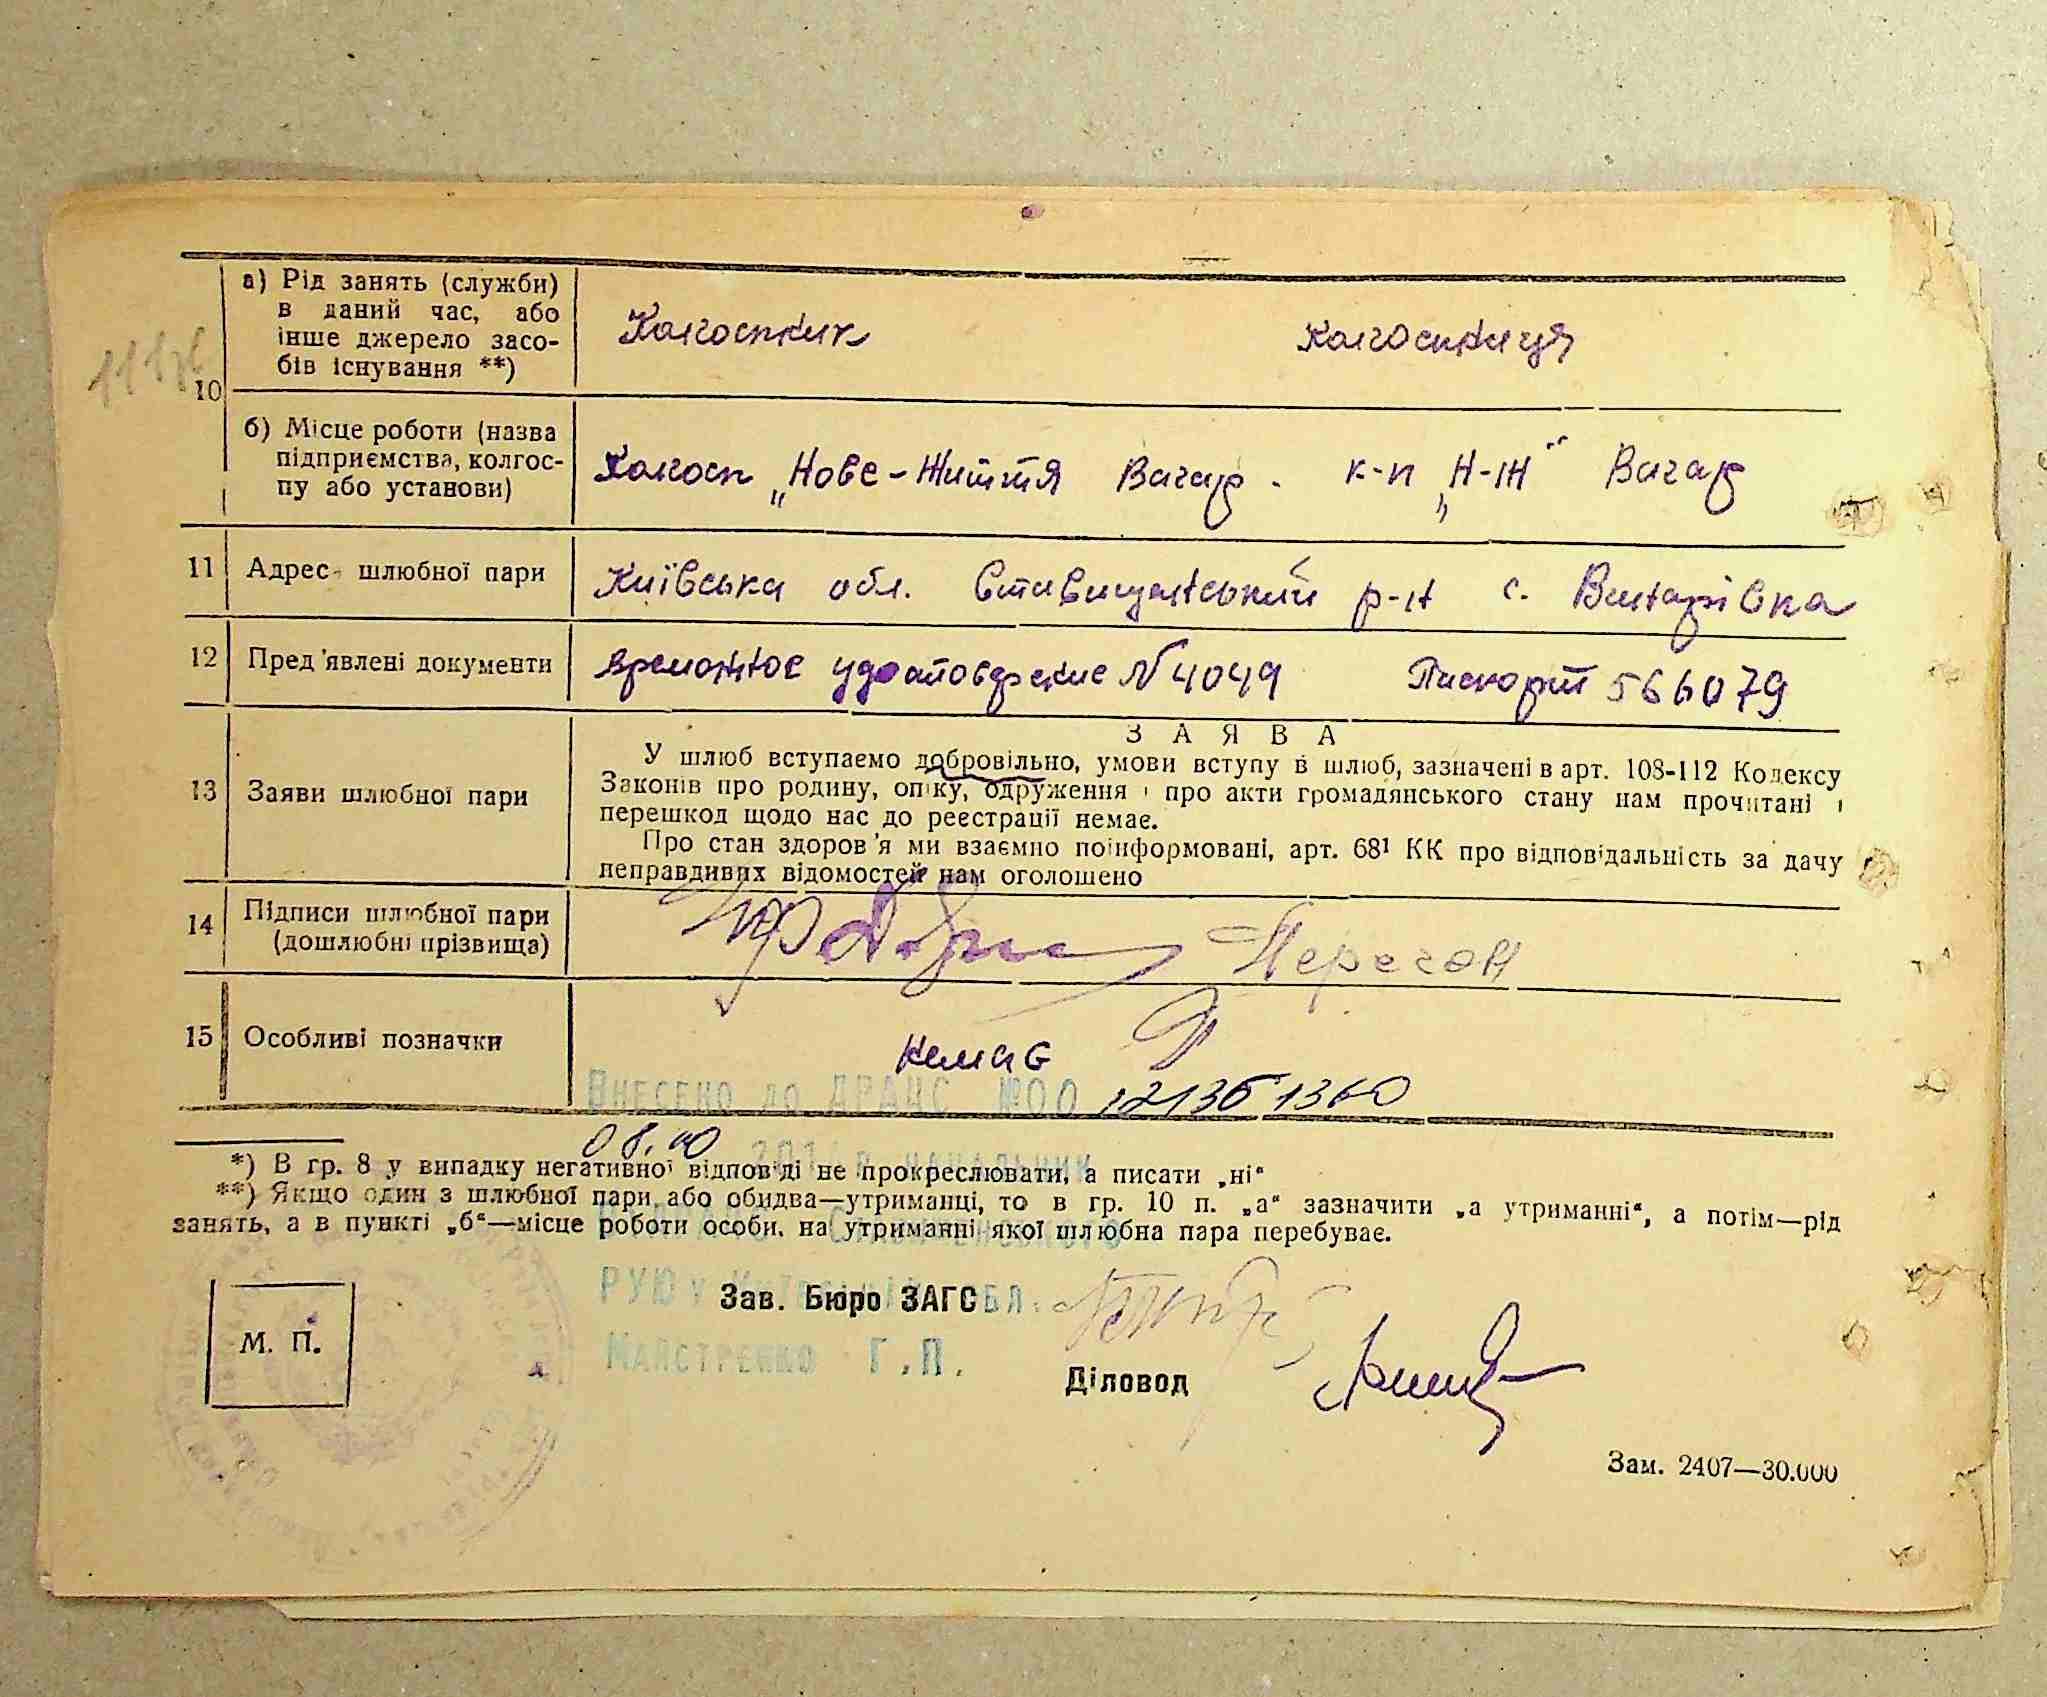 а) Рід занять (служби)
в даний час, або
інше джерело засо-
бів існування **)
Колгоспник колгоспниця
10
б) Місце роботи (назва
підприємства, колгос-
пу або установи)
Колгосп „Нове-Життя к-п „Н-Ж"
11 Адрес шлюбної пари
Київська обл. Ставищанський р-н с.
12 Пред'явлені документи
временное удостоверение N 4049 Паспорт 566079
13 Заяви шлюбної пари
ЗАЯВА
У шлюб вступаємо добровільно, умови вступу в шлюб, зазначені в арт. 108-112 Кодексу
Законів про родину, опіку, одруження і про акти громадянського стану нам прочитані і
перешкод щодо нас до реєстрації немає.
Про стан здоров'я ми взаємно поінформовані, арт. 68¹ КК про відповідальність за дачу
неправдивих відомостей нам оголошено
14 Підписи шлюбної пари
(дошлюбні прізвища)
Перегон
15 Особливі позначки
немає
Внесено до ДРАЦС №00 12136 1360
08.10
201 р. начальник
*) В гр. 8 у випадку негативної відповіді не прокреслювати, а писати „ні“
**) Якщо один з шлюбної пари або обидва—утриманці, то в гр. 10 п. „а“ зазначити „а утриманні“, а потім—рід
занять, а в пункті „б“—місце роботи особи, на утриманні якої шлюбна пара перебуває.
Ставищенського
РУЮ у Київській обл.
Зав. Бюро ЗАГС
М. П.
Майстренко Г.П.
Діловод
Зам. 2407—30.000